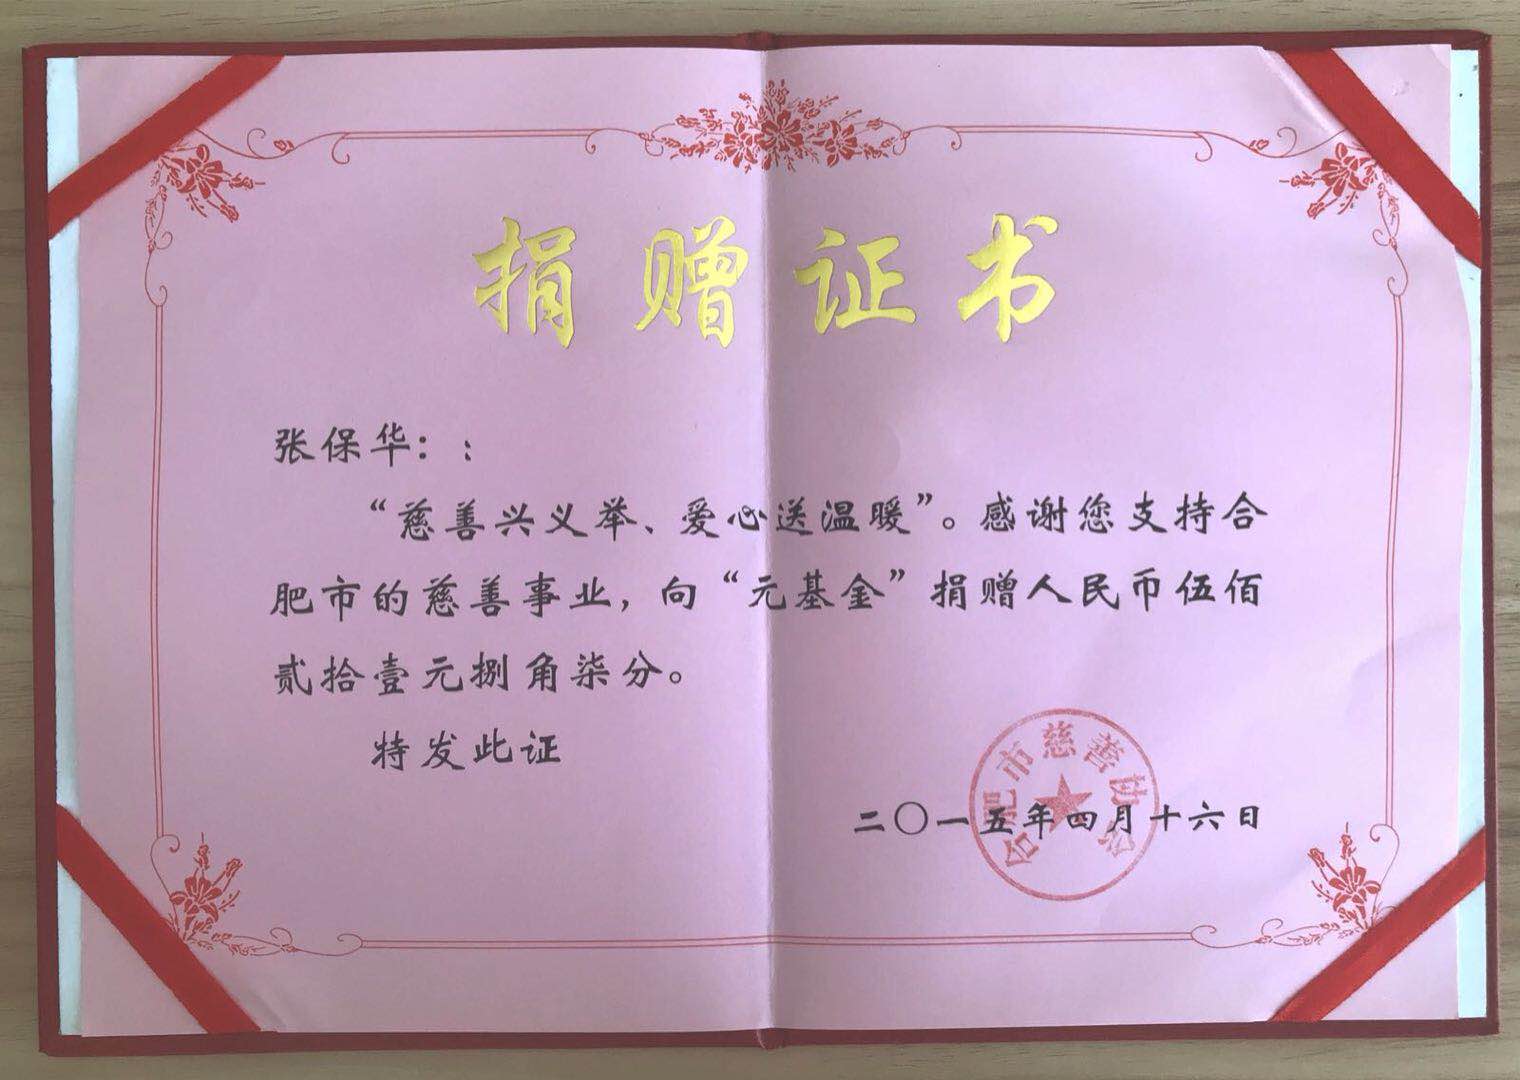 捐赠证书
张保华：：
“慈善兴义举、爱心送温暖”。感谢您支持合
肥市的慈善事业，向“元基金”捐赠人民币伍佰
贰拾壹元捌角柒分。
特发此证
合肥市慈善协会
二〇一五年四月十六日